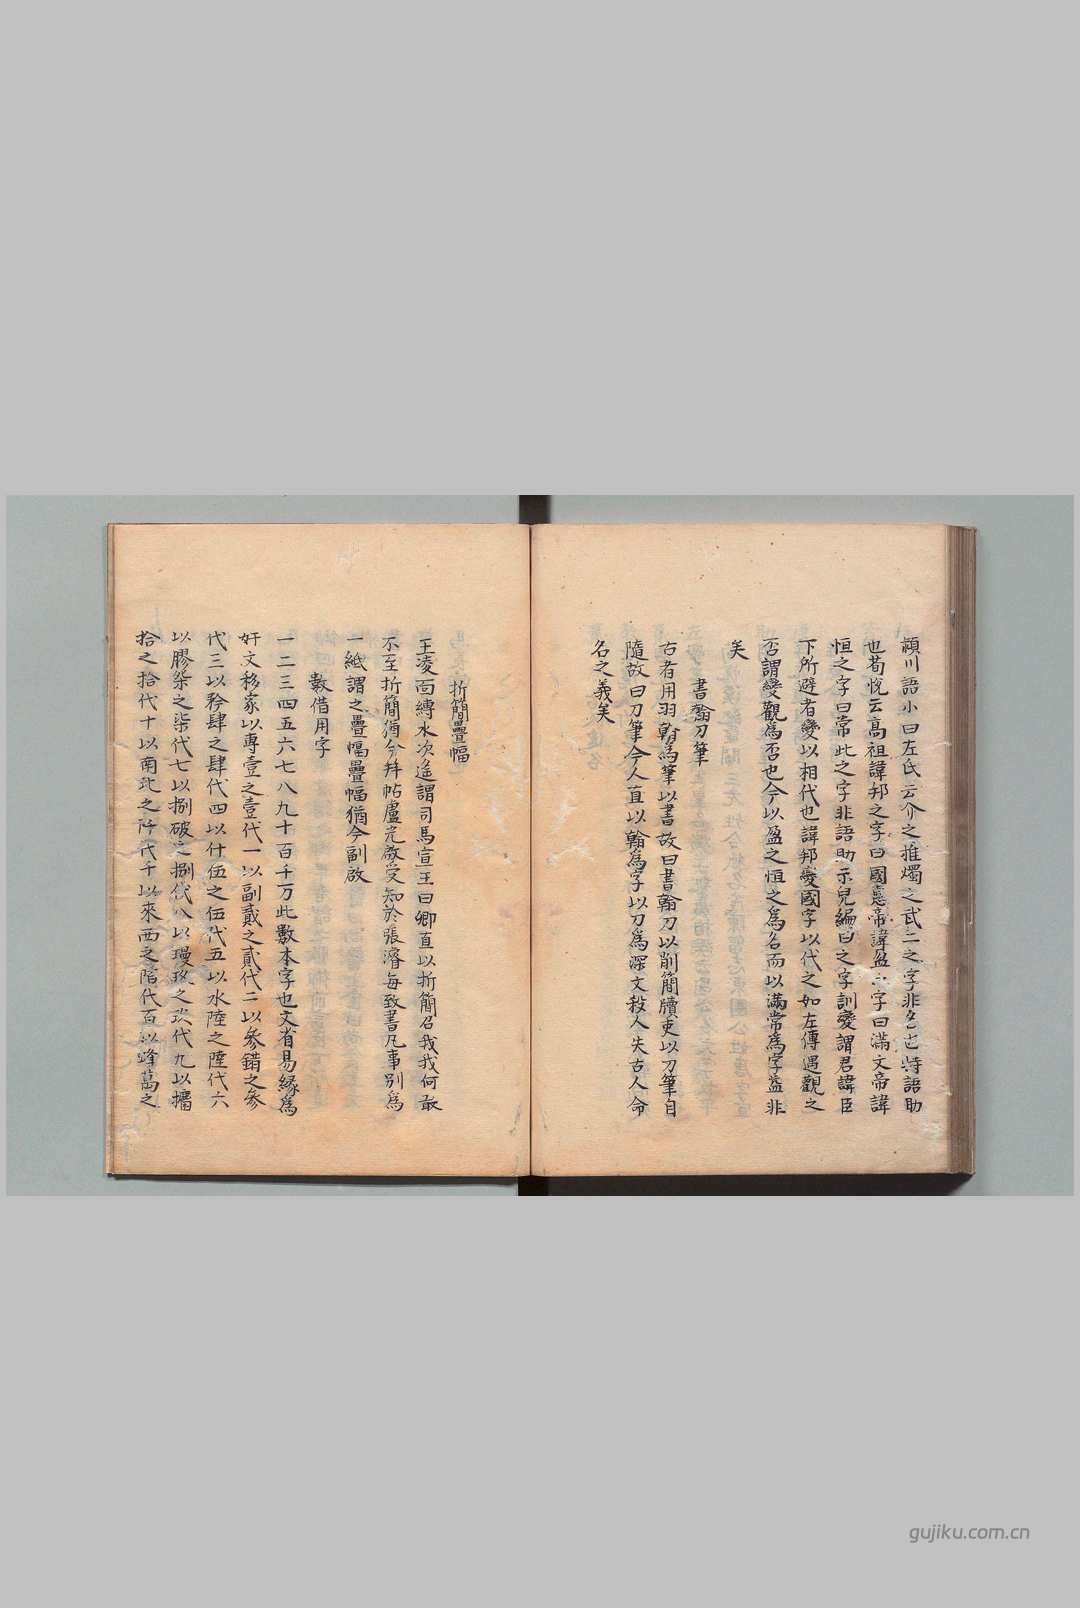 潁川語小曰左氏云介之推燭之武二之字非名也特語助
也荀悅云高祖諱邦之字曰國惠帝諱盈之字曰滿文帝諱
恒之字曰常此之字非語助示兒編曰之字訓變謂君諱臣
下所避者變以相代也諱邦變國字以代之如左傳遇觀之
否謂變觀為否也今以盈之恒之為名而以滿常為字益非
矣
書翰刀筆
古者用羽翰為筆以書故曰書翰刀以削簡牘吏以刀筆自
隨故曰刀筆今人直以翰為字以刀為深文殺人失古人命
名之義矣
折簡疊幅
王凌面縛水次遙謂司馬宣王曰卿直以折簡召我我何敢
不至折簡猶今幷帖盧光啟受知於張濬每致書凡事別為
一紙謂之疊幅疊幅猶今副啟
數借用字
一二三四五六七八九十百千万此數本字也文省易緣為
奸文移家以專壹之壹代一以副貳之貳代二以參錯之參
代三以矜肆之肆代四以什伍之伍代五以水陸之陸代六
以膠柒之柒代七以捌破之捌代八以瓊玖之玖代九以攟
拾之拾代十以南北之阡代千以來西之陌代百以蜂萬之
gujiku.com.cn